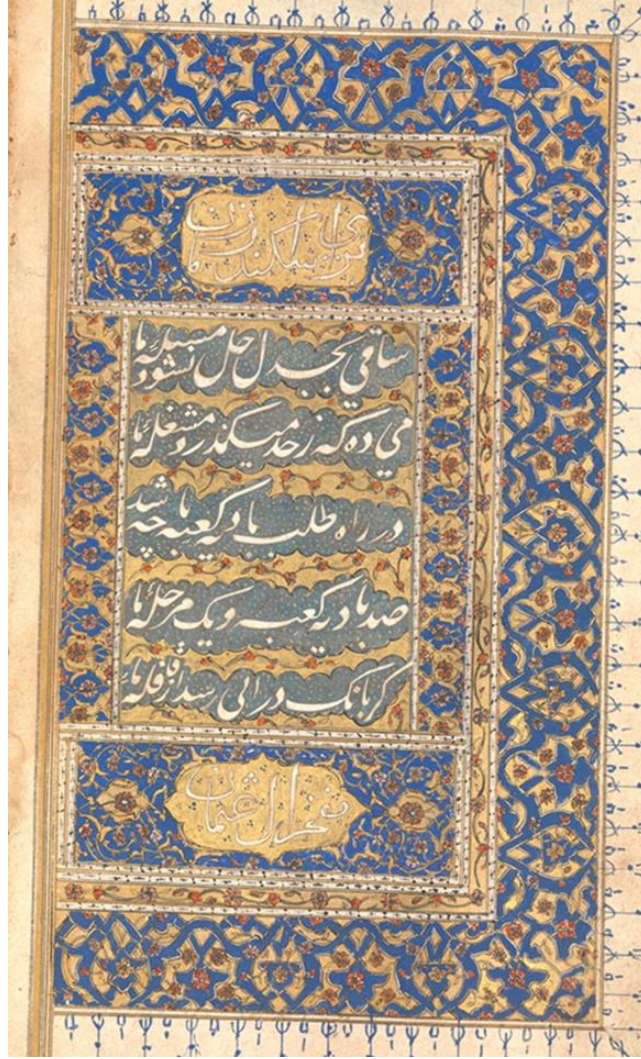 ساقی بجدل حل نشود مسئلهٔ ما
می ده که ز حد میگذرد مشغلهٔ ما
در راه طلب بادیه کعبه چه باشد
صد بادیه کعبه و یک مرحلهٔ ما
کر بانک درائی رسد از قافلهٔ ما
مفخر ال عثمان